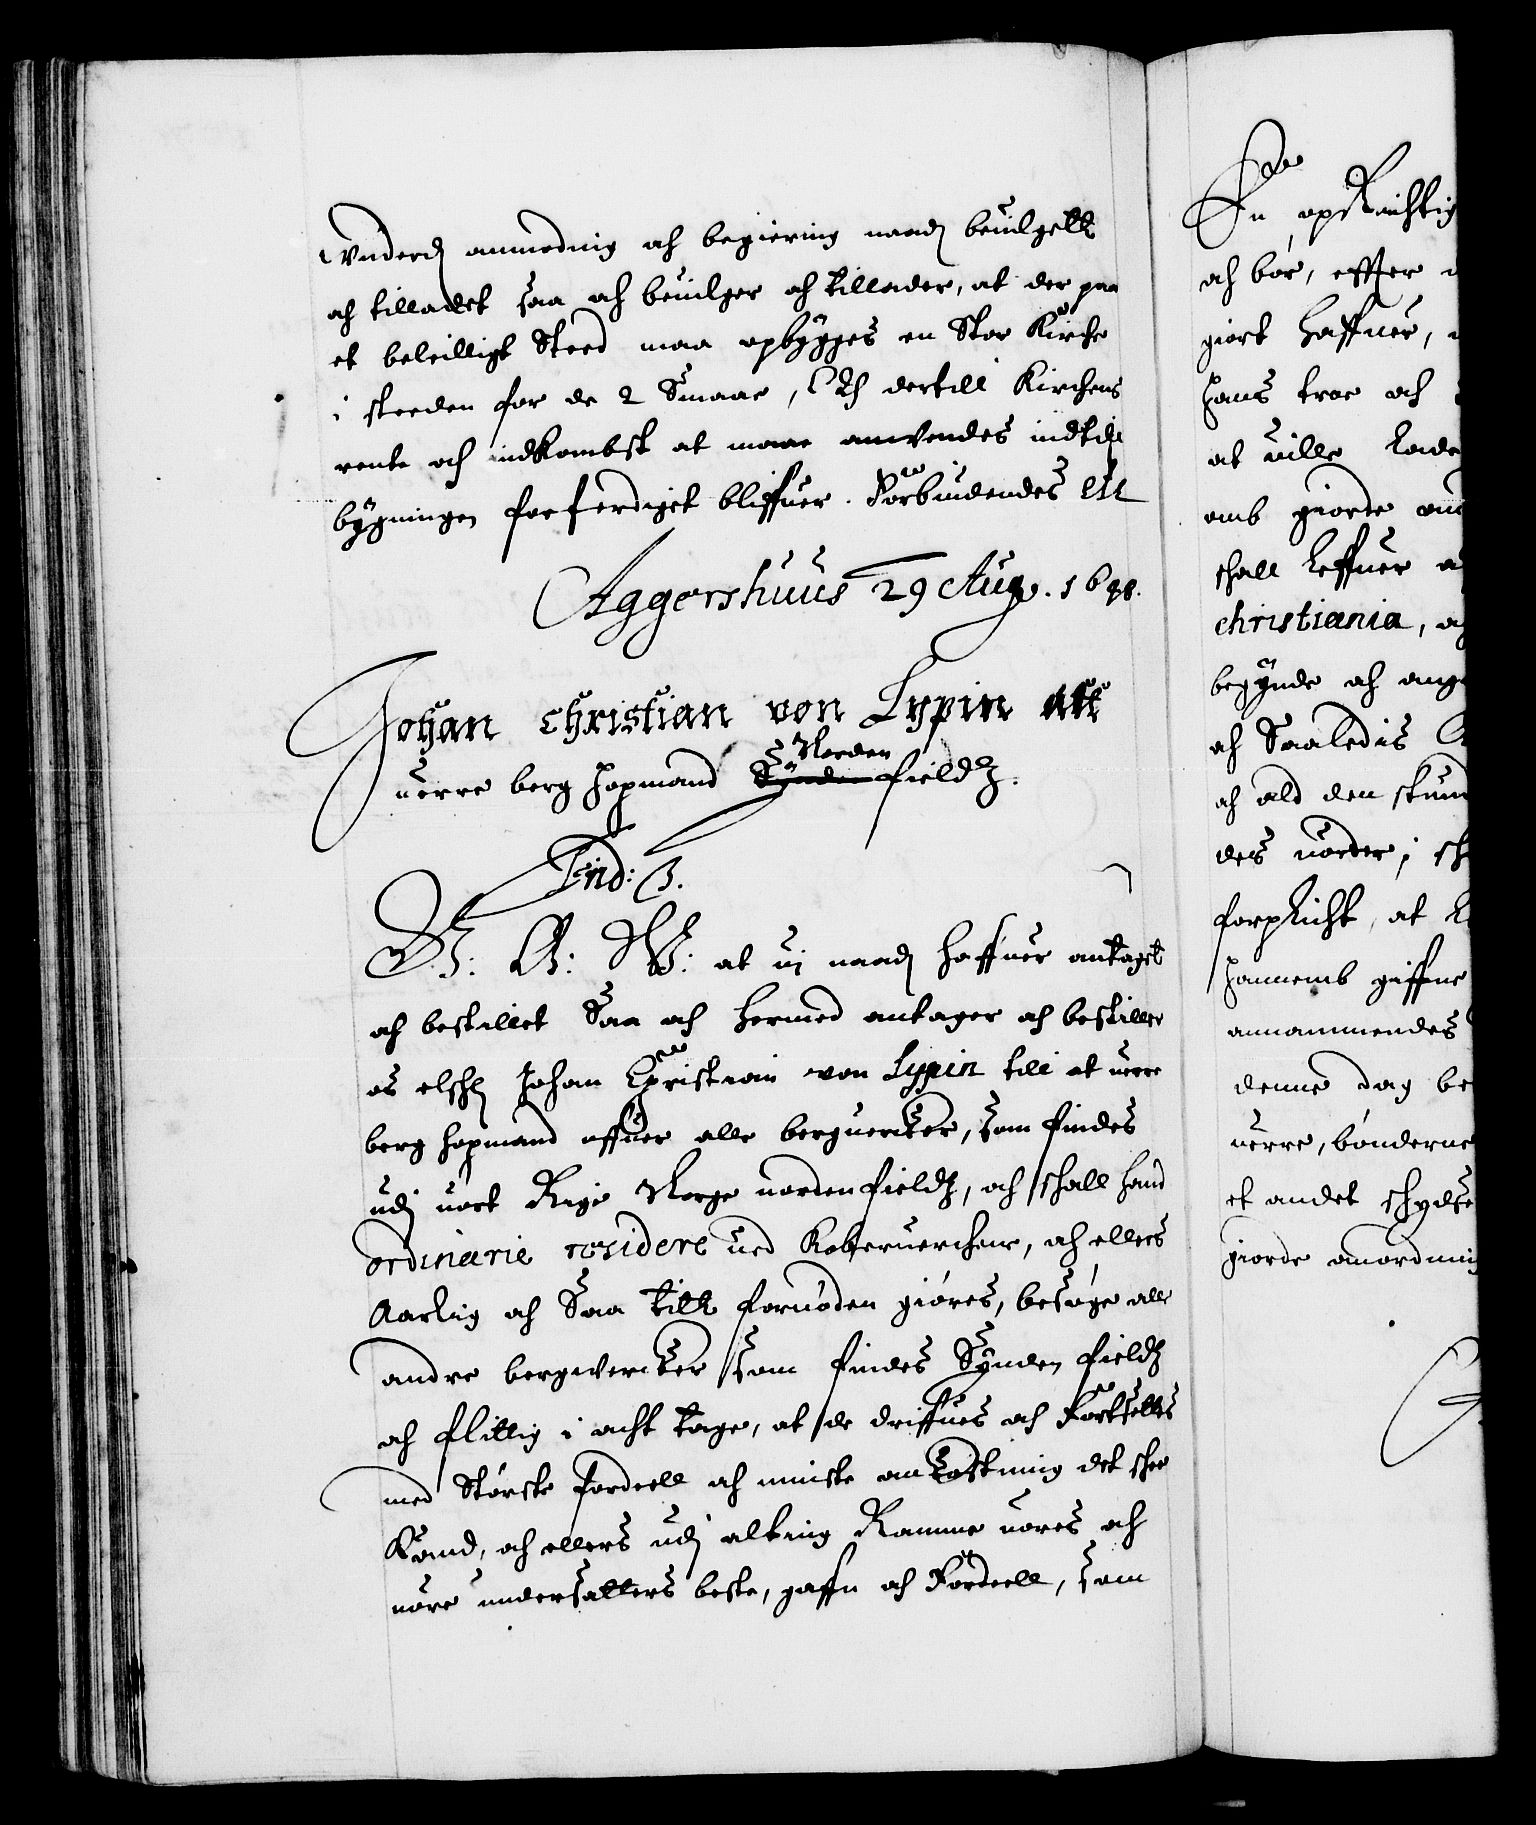 underd: anmodnig och begiering naad: beuilgett
och tilladet saa och beuilger och tillader, at der paa
et beleilligt Sted maa opbygges en Stor Kirche
i steeden for de 2 Smaae, Och dertill Kirchens
rente och indkombst at maae anvendes indtil
bygningen forferdiget bliffuer. Forbiudendes etc
Aggershuus 29 Aug. 1648.
Johan Christian von Lypin att
uerre berg hopmand Synden Norden fieldz.
Ind: 3.
V: G: W: at uj naad: haffuer antaget
och bestillet Saa och hermed antager och bestiller
os elschl: Johan Christian von Lypin till at uerre
berg hopmand offuer alle berguercker, som findes
udj uort Rige Norge nordenfieldz, och schall hand
ordinarie residere ued Koberuerchene, och ellers
Aarlig och Saa titt fornøden giøres, besøge alle
andre bergwercker som findes Synden fieldz
och flittig i acht tage, at de driffues och Fortsettes
med Største fordeell och minste ankostning det schee
Kand, och ellers udj alting Ramme uores och
uore undersatters beste, gaffn och Fordeell, som
En opRichtig
och bør, effter
giort haffuer,
hans troe och
at uille lade
omb giorde
schall leffuer
christiania,
begynde och
och Saaledis
och ald den stund
des uorder, i
forplicht, at
hannemb giffne
annammendes
denne dag
uerre, bønderne
et andet schyds
giorde anordning